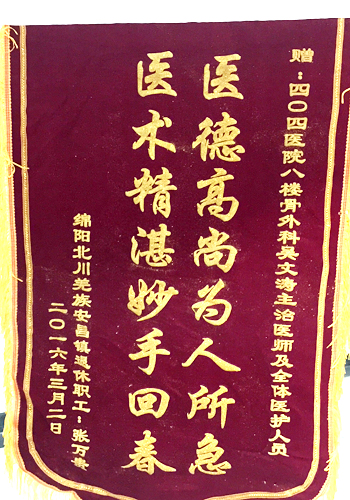 赠：四〇四医院八楼骨外科吴文涛主治医师及全体医护人员
医德高尚为人所急
医术精湛妙手回春
绵阳北川羌族安昌镇退休职工：张万贵
二〇一六年三月二日